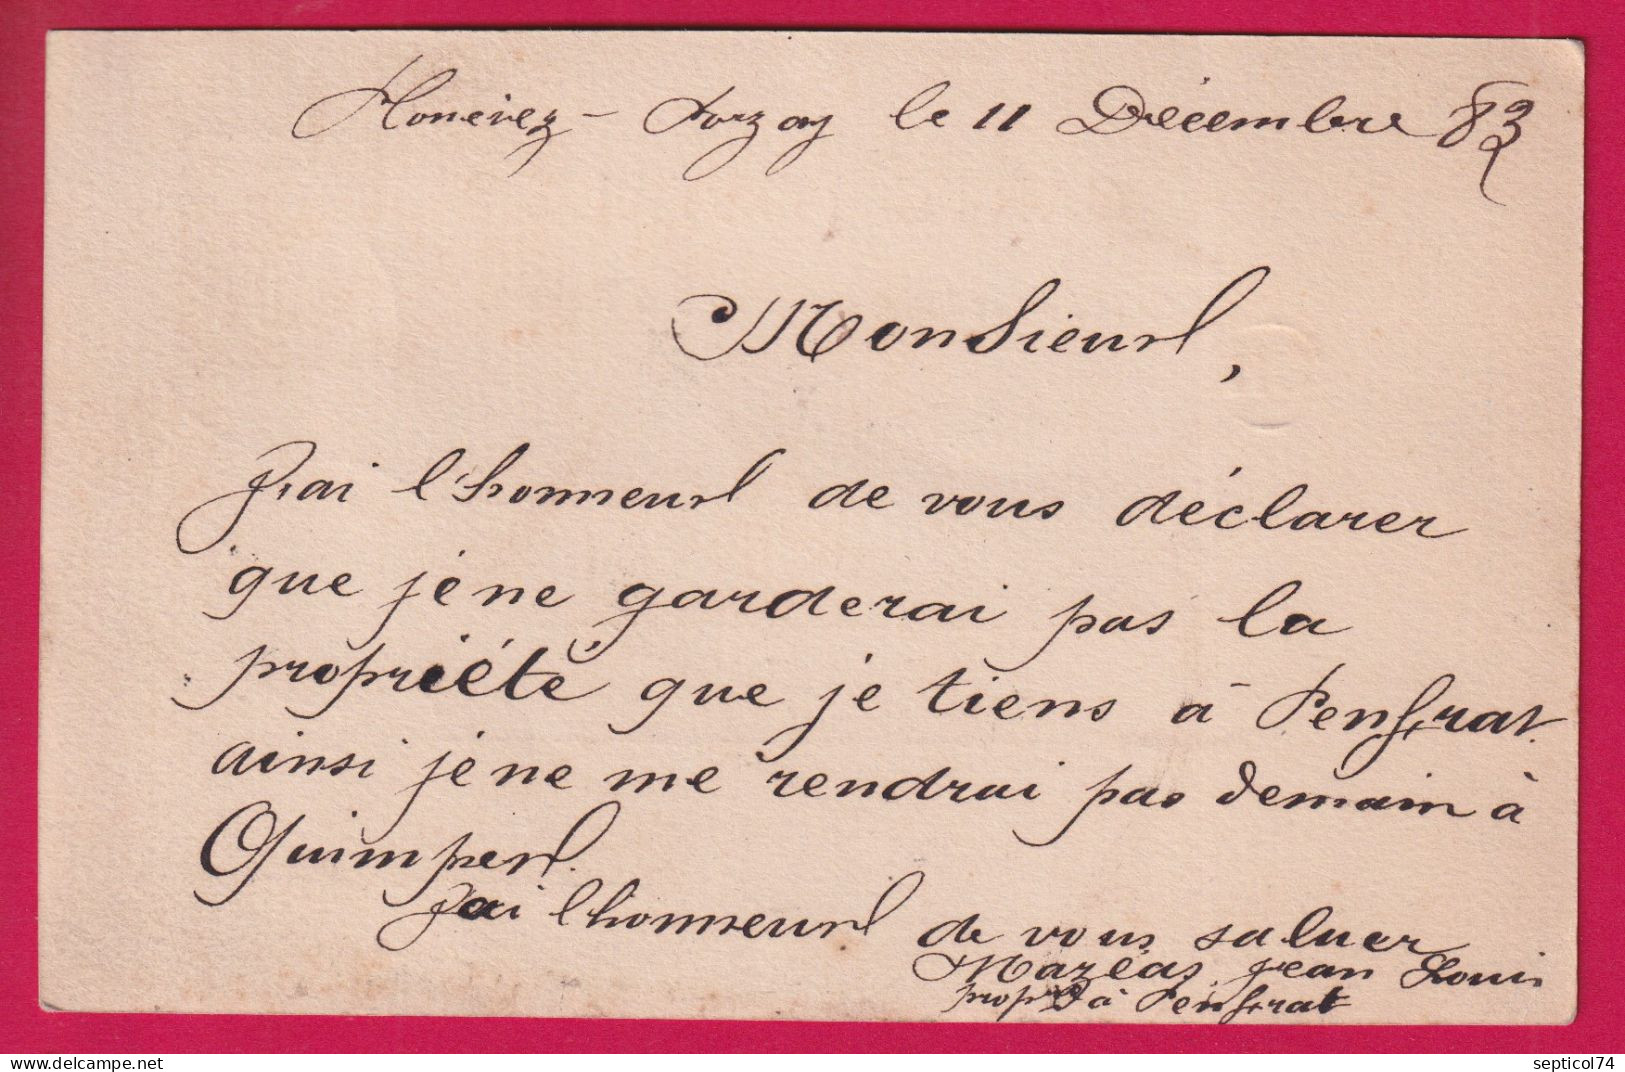 Plonévez-Porzay le 11 Décembre 83
Monsieur,
J'ai l'honneur de vous déclarer
que je ne garderai pas la
propriété que je tiens à Penfrat.
ainsi je ne me rendrai pas demain à
Quimper.
J'ai l'honneur de vous saluer
Mazéas Jean Louis
propre à Penfrat
septicol74